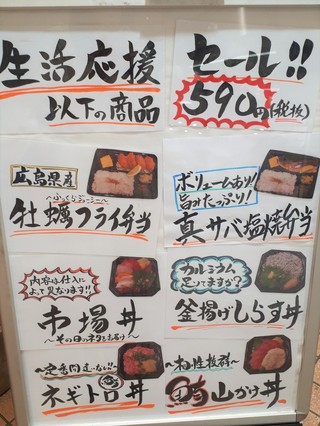 生活応援
セール!!
以下の商品
590円(税抜)
広島県産
〜ふっくらジューシー〜
牡蠣フライ弁当
ボリュームあり!
旨みたっぷり!
真サバ塩焼弁当
内容は仕入に
よって異なります!!
市場丼
〜その日のネタをお届け〜
カルシウム
足りてますか?
釜揚げしらす丼
〜定番
ネギトロ丼
〜相性抜群〜
山かけ丼